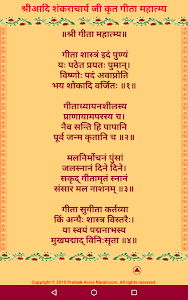 श्रीआदि शंकराचार्य जी कृत गीता महात्म्य
॥श्री गीता महात्म्य॥
गीता शास्त्रं इदं पुण्यं
यः पठेत प्रयतः पुमान्।
विष्णोः पदं अवाप्नोति
भय शोकादि वर्जितः ॥१॥
गीताध्यायनशीलस्य
प्राणायामपरस्य च।
नैव सन्ति हि पापानि
पूर्व जन्म कृतानि च ॥२॥
मलनिर्मोचनं पुंसां
जलस्नानं दिने दिने।
सकृद् गीतामृतं स्नानं
संसार मल नाशनम् ॥३॥
गीता सुगीता कर्तव्या
किं अन्यैः शास्त्र विस्तरैः।
या स्वयं पद्मनाभस्य
मुखपद्माद् विनिःसृता ॥४॥
Copyright © 2015 Prateek Arora Narainizm, All rights reserved.